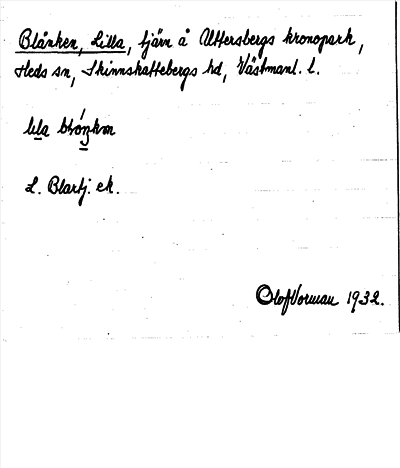 Blånken, Lilla, tjärn å Uttersbergs kronopark,
Heds sn, Skinnskattebergs hd, Västmanl. l.
lila
L. Blartj. ek.
Olof Vorman 1932.